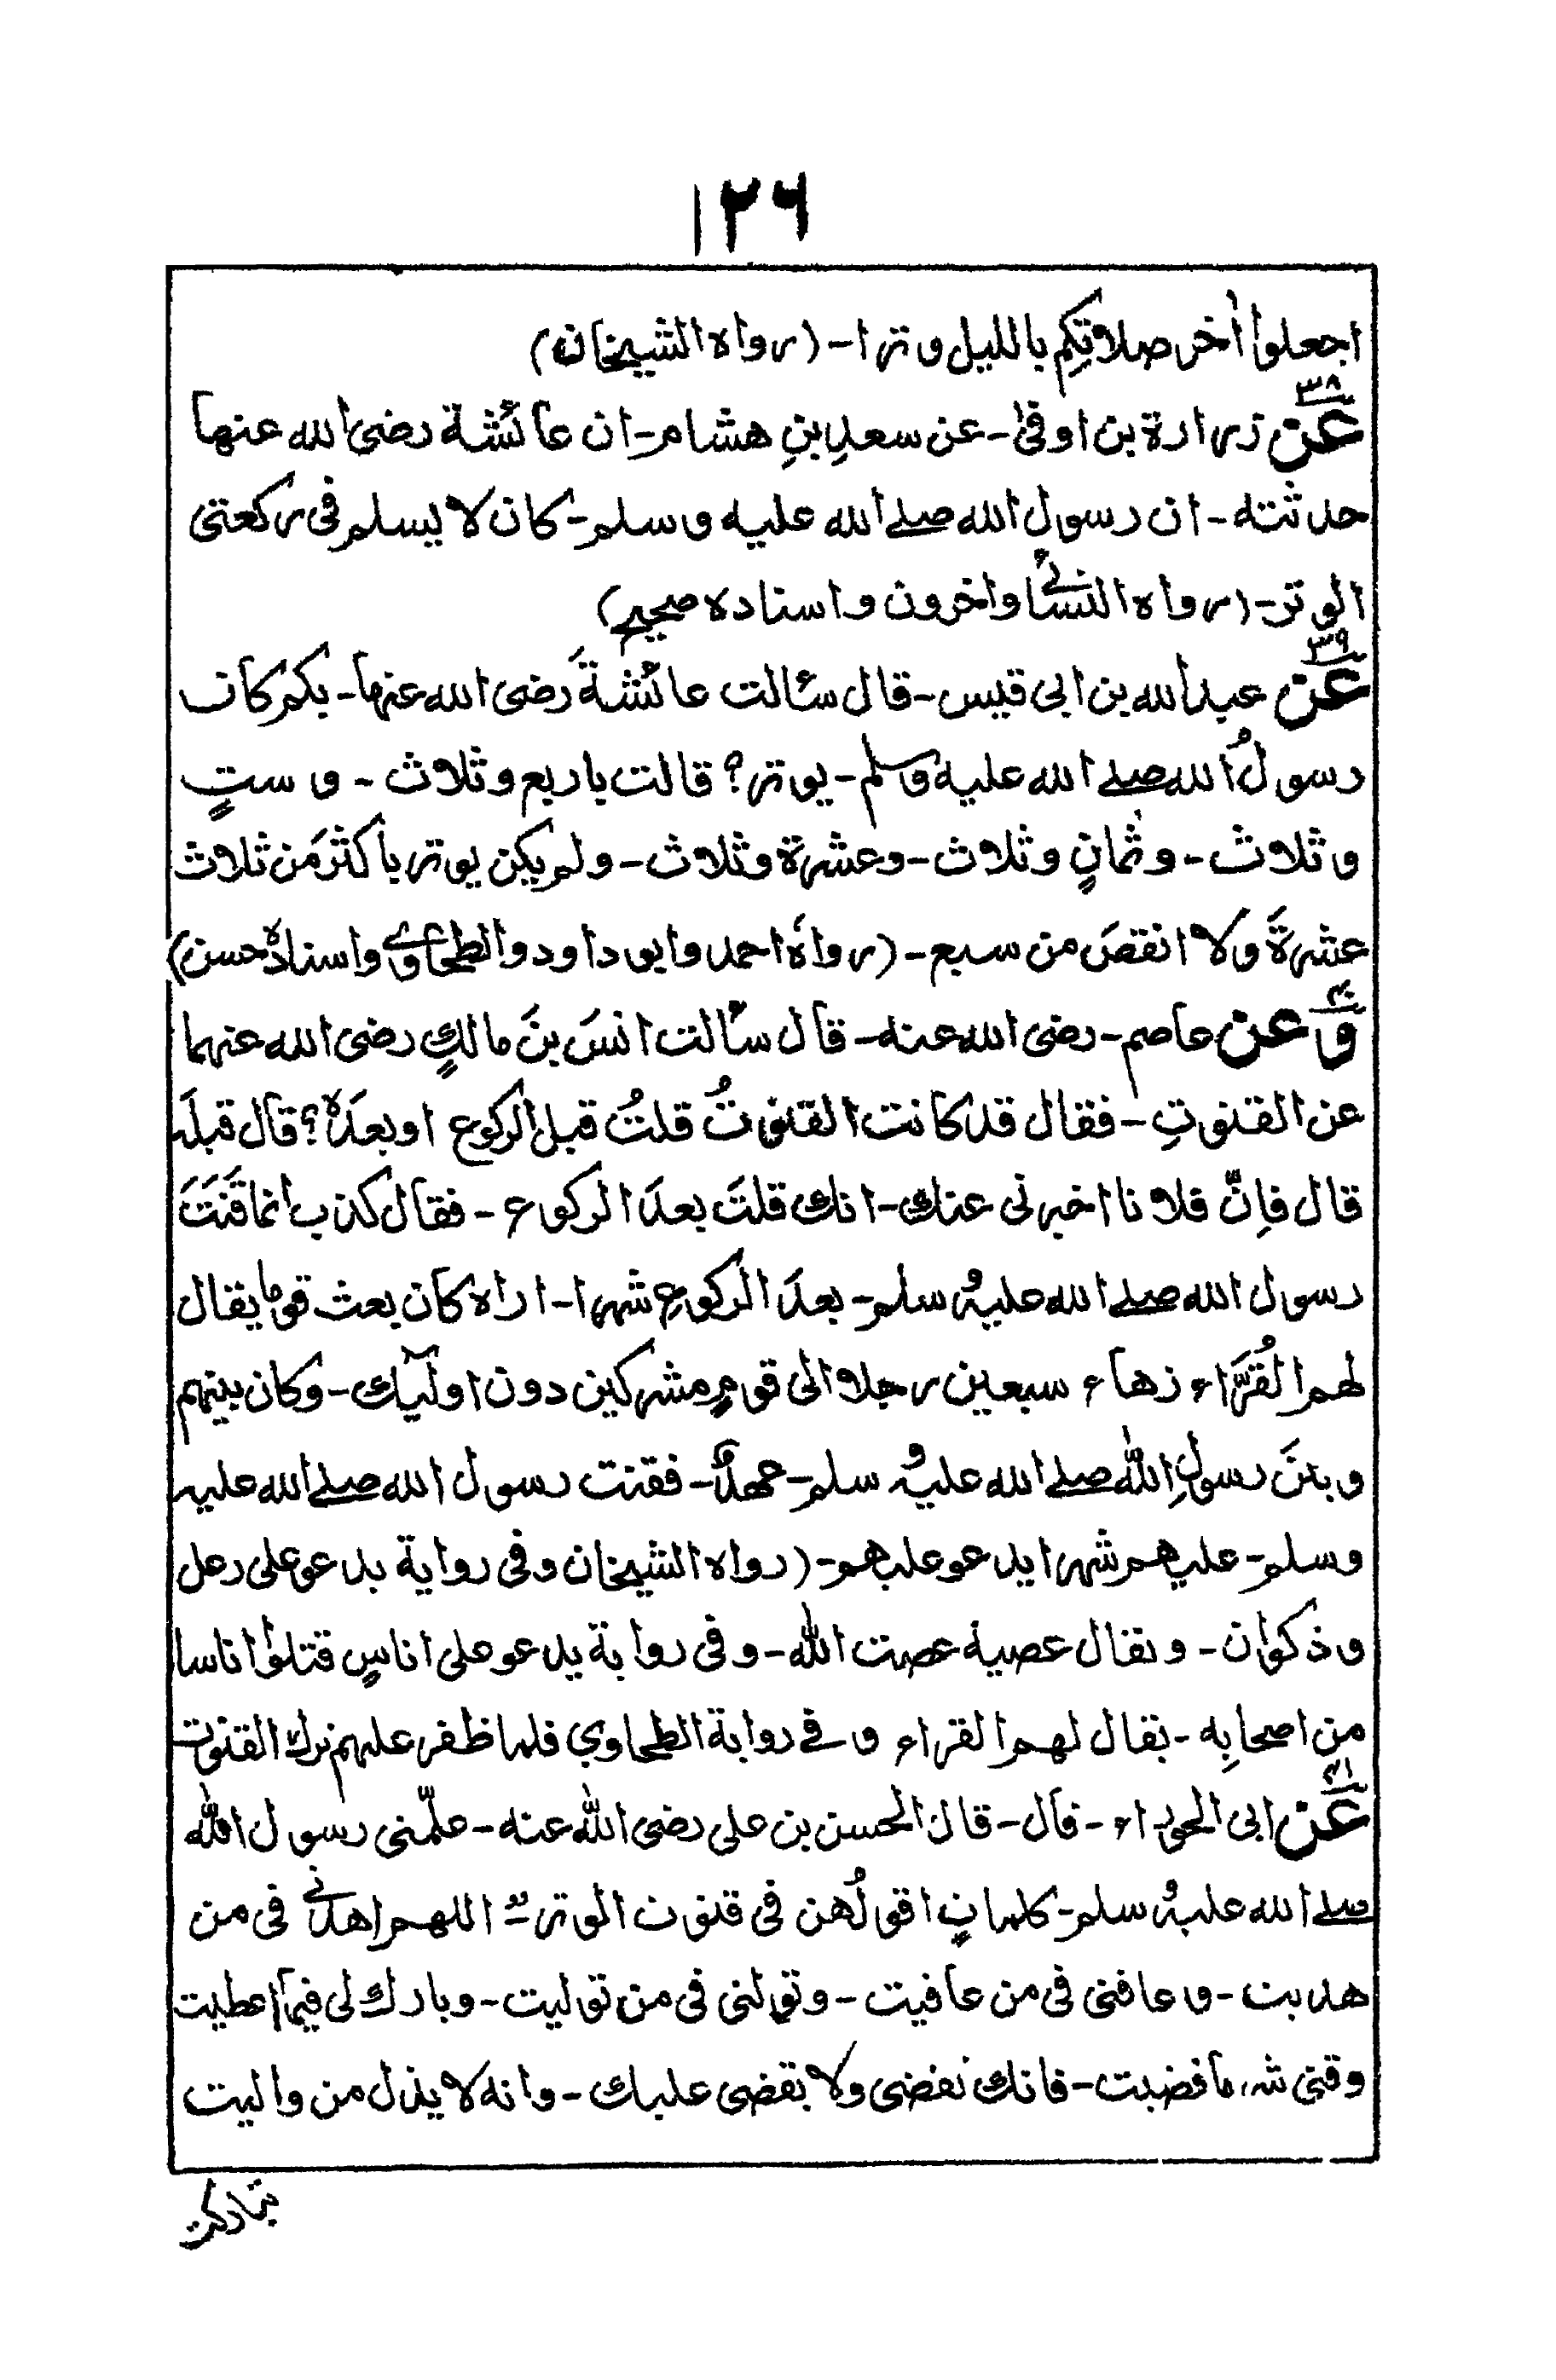 ۱۲۶
اجعلوا اٰخر صلاتِكم بالليل وترا - (رواه الشيخان)
۳۸
عن زرارة بن اوفیٰ - عن سعدِ بنِ هشام - ان عائشة رضی الله عنها
حدثته - ان رسول الله صلے الله عليه وسلم - كان لا يسلم فی ركعتی
الوتر - (رواه النسائے واٰخرون واسناده صحيح)
۳۹
عن عبد الله بن ابی قيس - قال سئالت عائشةَ رضی الله عنها - بكم كان
رسولُ الله صلے الله عليه وسلم - يوتر؟ قالت باربع وثلاث - و ستٍ
و ثلاث - وثمانٍ وثلاث - وعشرة وثلاث - ولم يكن يوتر باكثرَ من ثلاث
عشرةَ ولا انقصَ من سبع - (رواهُ احمد وابو داود والطحاوے واسنادهٗ حسن)
۴۰
وعن عاصم - رضی الله عنه - قال سألت انسَ بنَ مالكٍ رضی الله عنهما
عن القنوتِ - فقال قد كانت القنوتُ قلتُ قبل الركوع اوبعدَهٗ؟ قال قبلَه
قال فاِنَّ فلانا اخبرنی عنك - انك قلتَ بعدَ الركوع - فقال كذب انما قَنَتَ
رسول الله صلے الله عليه وسلم - بعدَ الركوعِ شهرا - اراه كان بعث قوما يقال
لهم القُرَّاء زهاء سبعين رجلا الی قومٍ مشركين دون اولٓيك - وكان بينهم
و بينَ رسولِ اللّٰه صلے الله عليه وسلم - عهدٌ - فقنت رسول الله صلے الله عليه
وسلم - عليهم شهرا يدعو عليهم - (رواه الشيخان وفی رواية يدعو علی رعل
و ذكوان - ويقال عصية عصت اللّٰه - وفی رواية يدعو علی اناسٍ قتلوا اناسا
من اصحابِه - يقال لهم القراء و فے رواية الطحاوي فلما ظفر عليهم ترك القنوت
۴۱
عن ابی الحوراء - قال - قال الحسن بن علی رضی اللّٰه عنه - علّمنی رسول اللّٰه
صلے الله عليه وسلم - كلماتٍ اقولُهن فی قنوت الوتر - اللهم اهدنے فی من
هديت - و عافنی فی من عافيت - وتولنی فی من توليت - وبارك لی فيما اعطيت
وقنی شر ما قضيت - فانك تقضی ولا يقضی عليك - وانه لا يذل من واليت
تباركت